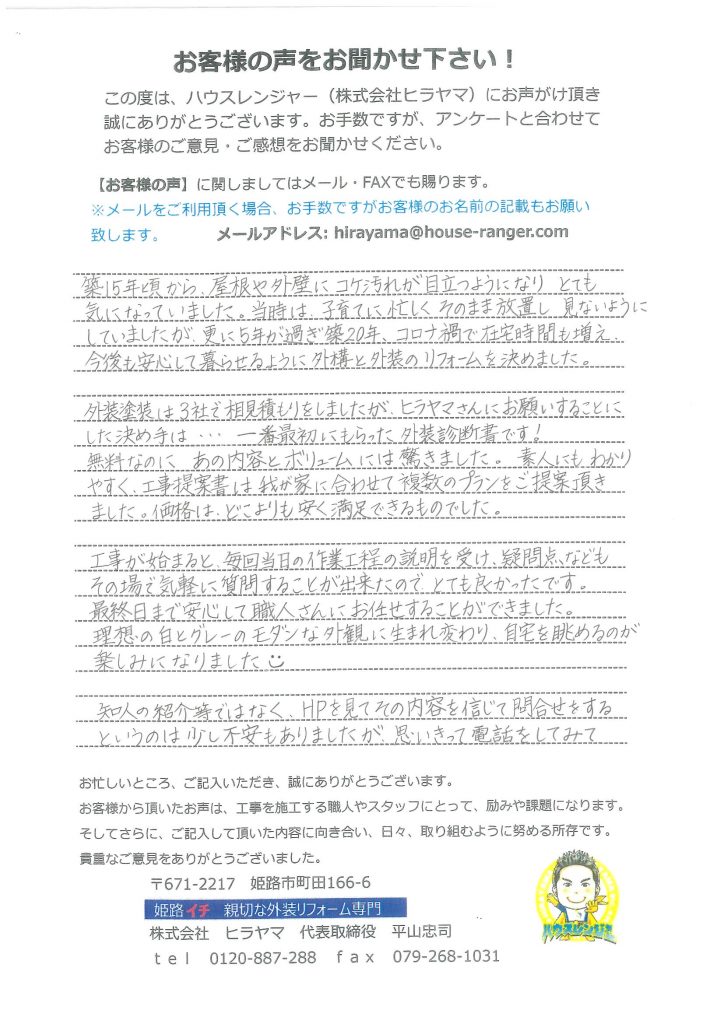 お客様の声をお聞かせ下さい！
この度は、ハウスレンジャー（株式会社ヒラヤマ）にお声がけ頂き
誠にありがとうございます。お手数ですが、アンケートと合わせて
お客様のご意見・ご感想をお聞かせください。
【お客様の声】に関しましてはメール・FAXでも賜ります。
※メールをご利用頂く場合、お手数ですがお客様のお名前の記載もお願い
致します。 メールアドレス: hirayama@house-ranger.com
築15年頃から、屋根や外壁にコケ汚れが目立つようになり とても
気になっていました。当時は、子育てに忙しく そのまま放置し 見ないように
していましたが、更に5年が過ぎ築20年、コロナ禍で在宅時間も増え、
今後も安心して暮らせるように外構と外装のリフォームを決めました。
外装塗装は3社で相見積もりをしましたが、ヒラヤマさんにお願いすることに
した決め手は… 一番最初にもらった外装診断書です！
無料なのに あの内容とボリュームには驚きました。 素人にも わかり
やすく、工事提案書は我が家に合わせて複数のプランをご提案頂き
ました。価格は、どこよりも安く満足できるものでした。
工事が始まると、毎回当日の作業工程の説明を受け、疑問点なども
その場で気軽に質問することが出来たので、とても良かったです。
最終日まで安心して職人さんにお任せすることができました。
理想の白とグレーのモダンな外観に生まれ変わり、自宅を眺めるのが
楽しみになりました
知人の紹介等ではなく、HPを見てその内容を信じて問合せをする
というのは少し不安もありましたが、思いきって電話をしてみて
お忙しいところ、ご記入いただき、誠にありがとうございます。
お客様から頂いたお声は、工事を施工する職人やスタッフにとって、励みや課題になります。
そしてさらに、ご記入して頂いた内容に向き合い、日々、取り組むように努める所存です。
貴重なご意見をありがとうございました。
〒671-2217 姫路市町田166-6
姫路イチ 親切な外装リフォーム専門
株式会社 ヒラヤマ 代表取締役 平山忠司
ｔｅｌ 0120-887-288 ｆａｘ 079-268-1031
ハウスレンジャー